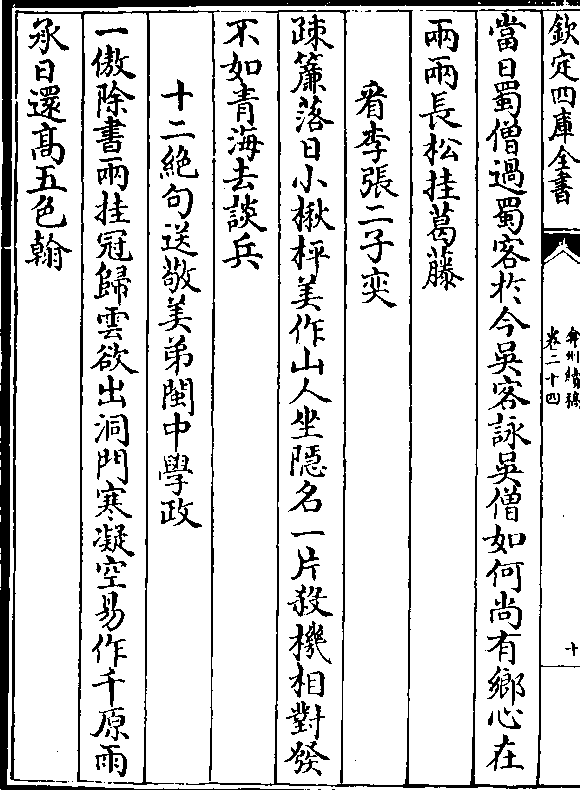 欽定四庫全書
弇州續稿
卷二十四
十
當日蜀僧過蜀客於今吳客詠吳僧如何尚有鄉心在
兩兩長松挂葛藤
看李張二子奕
疎簾落日小楸枰美作山人坐隱名一片殺機相對發
不如青海去談兵
十二絶句送敬美弟閩中學政
一傲除書兩挂冠歸雲欲出洞門寒凝空易作千原雨
承日還髙五色翰